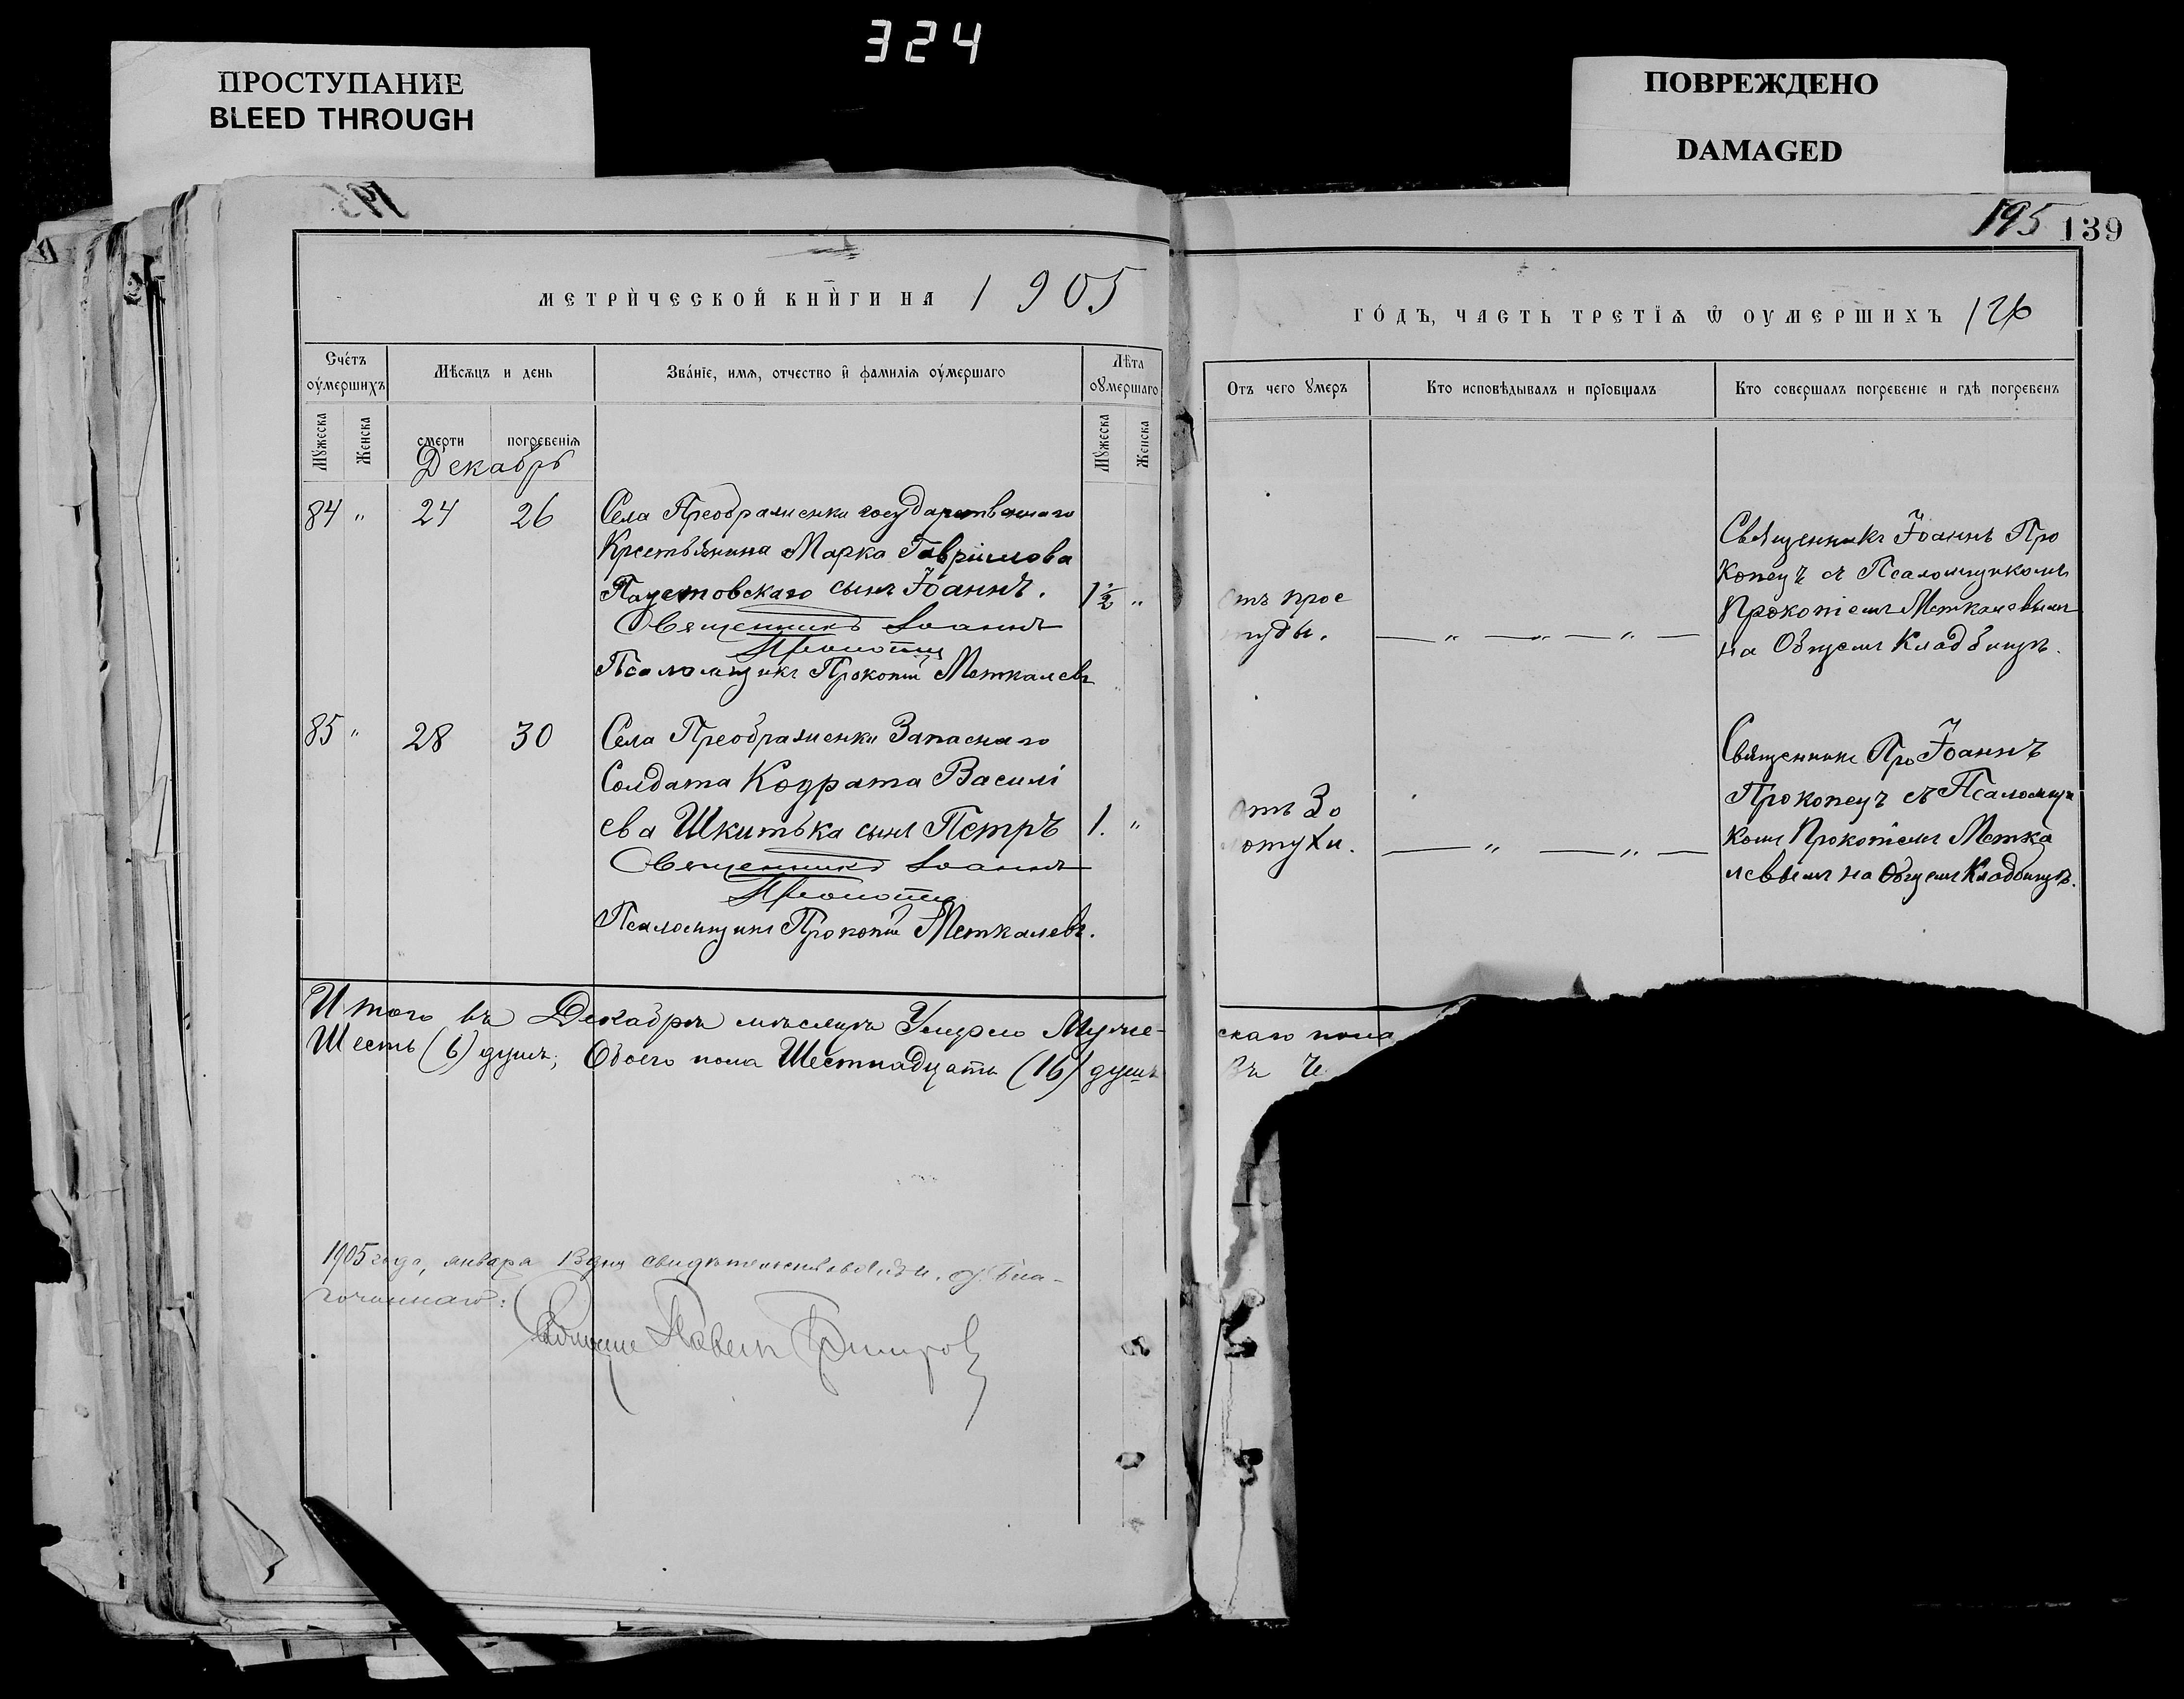 324
ПРОСТУПАНИЕ
BLEED THROUGH
ПОВРЕЖДЕНО
DAMAGED
195 139
МЕТРИ́ЧЕСКОЙ КНИ́ГИ НА 1905
ГО́ДЪ, ЧАСТЬ ТРЕТІѦ Ѿ ОУМЕРШИХЪ 126
Сче́тъ оу́мершихъ
Мѣсѧцъ и день
Зва́нїе, имѧ, отчество и҆ фамилїѧ оу́мершаго
Лѣта оумершаго
Мꙋжеска
Женска
смерти
погребенїѧ
Мꙋжеска
Женска
Отъ чего ꙋмеръ
Кто исповѣдывалъ и прїобщалъ
Кто совершалъ погребенїе и гдѣ погребенъ
Декабрь
84 " 24 26 Села Преображенки государственнаго
Крестьянина Марка Гавріилова
Паустовскаго сынъ Іоаннъ. 1½ "
Священникъ Іоаннъ
Прокопецъ
Псаломщикъ Прокопій Меткалевъ
Отъ прос
туды.
— " — " — " —
Священникъ Іоаннъ Про
копецъ съ Псаломщикомъ
Прокопіемъ Меткалевымъ
на Общемъ Кладбищѣ.
85 " 28 30 Села Преображенки Запаснаго
Солдата Кодрата Василі
ева Шкитька сынъ Петръ 1. "
Священникъ Іоаннъ
Прокопецъ
Псаломщикъ Прокопій Меткалевъ.
Отъ Зо
лотухи.
— " — " —
Священникъ Про Іоаннъ
Прокопецъ съ Псаломщи
комъ Прокопіемъ Метка
левымъ на Общемъ Кладбищѣ.
Итого въ Декабрѣ мѣсяцѣ Умерло Муже-
скаго пола
Шесть (6) душъ; Обоего пола Шестнадцать (16) душъ
1905 года, января 13 дня свидѣтельствовалъ и. д. Бла-
гочиннаго:
Священникъ Павелъ